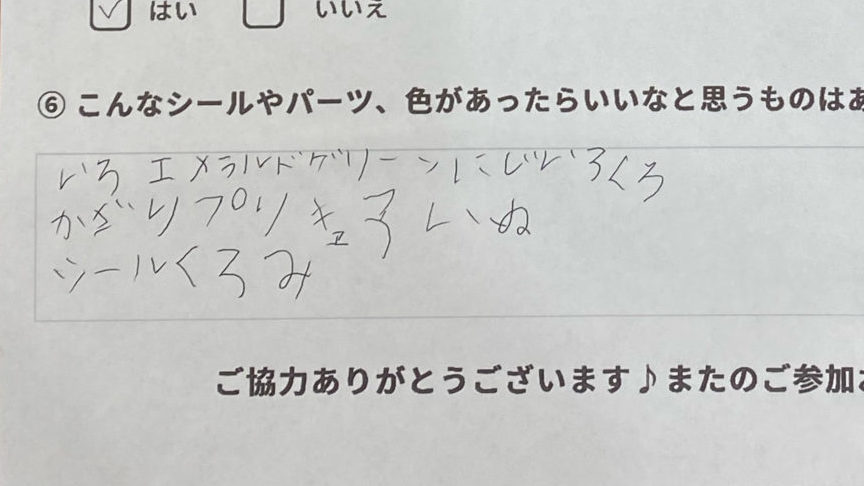 はい いいえ
⑥ こんなシールやパーツ、色があったらいいなと思うものはあ
いろ エメラルドグリーンにじいろくろ
かざりプリキュア いぬ
シールくろみ
ご協力ありがとうございます♪またのご参加お